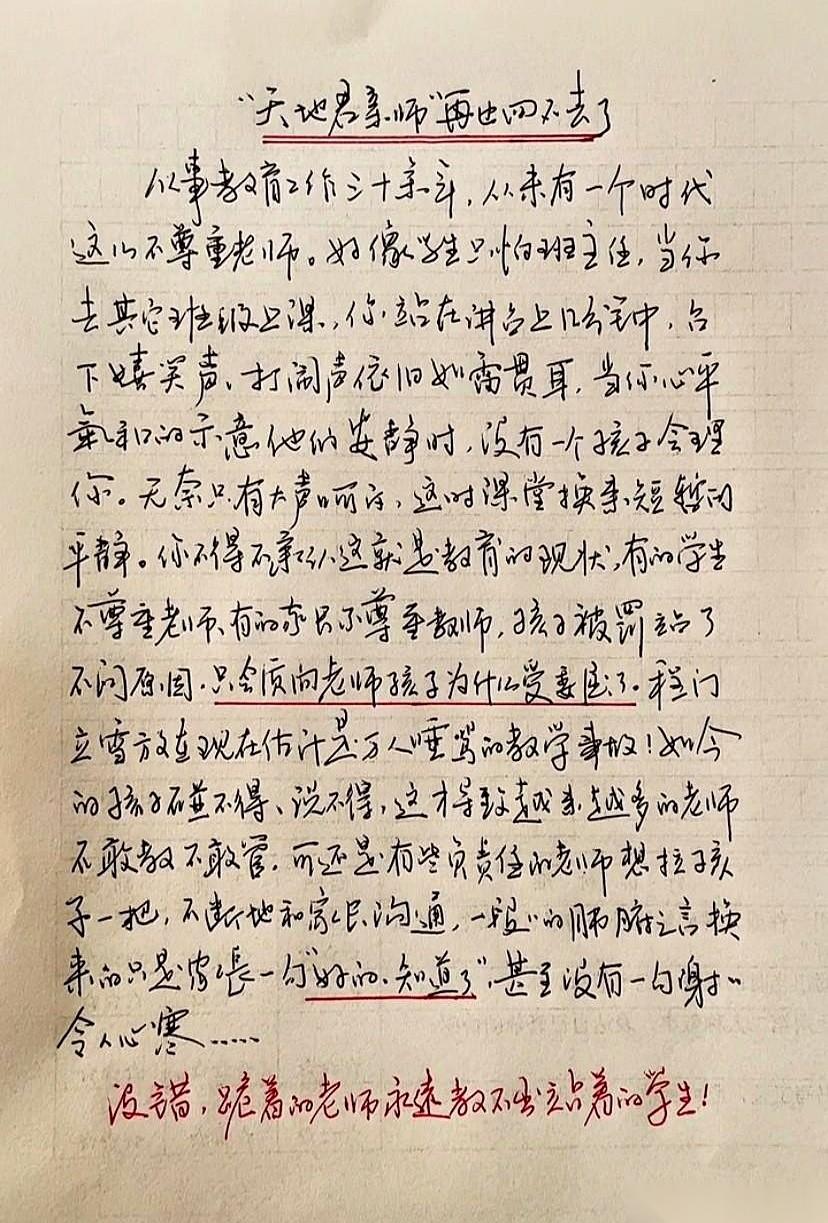 “天地君亲师”再也回不去了
从事教育工作三十余年，从未有一个时代
这么不尊重老师。好像学生只怕班主任，当你
去其它班级上课，你站在讲台上几分钟，台
下嘻笑声、打闹声依旧如雷贯耳，当你心平
氣和的示意他们安静时，没有一个孩子会理
你。无奈只有大声呵斥，这时课堂换来短暂的
平静。你不得不承认这就是教育的现状，有的学生
不尊重老师、有的家长不尊重教师，孩子被罚站了
不问原因，只会质问老师孩子为什么受委屈了。程门
立雪放在现在估计是万人唾骂的教学事故！如今
的孩子碰不得、说不得，这才导致越来越多的老师
不敢教不敢管，可还是有些负责任的老师想拉孩
子一把，不断地和家长沟通，一段〃的肺腑之言换
来的只是家長一句“好的、知道了”，甚至没有一句谢〃
令人心寒……
没错，跪着的老师永远教不出站着的学生！